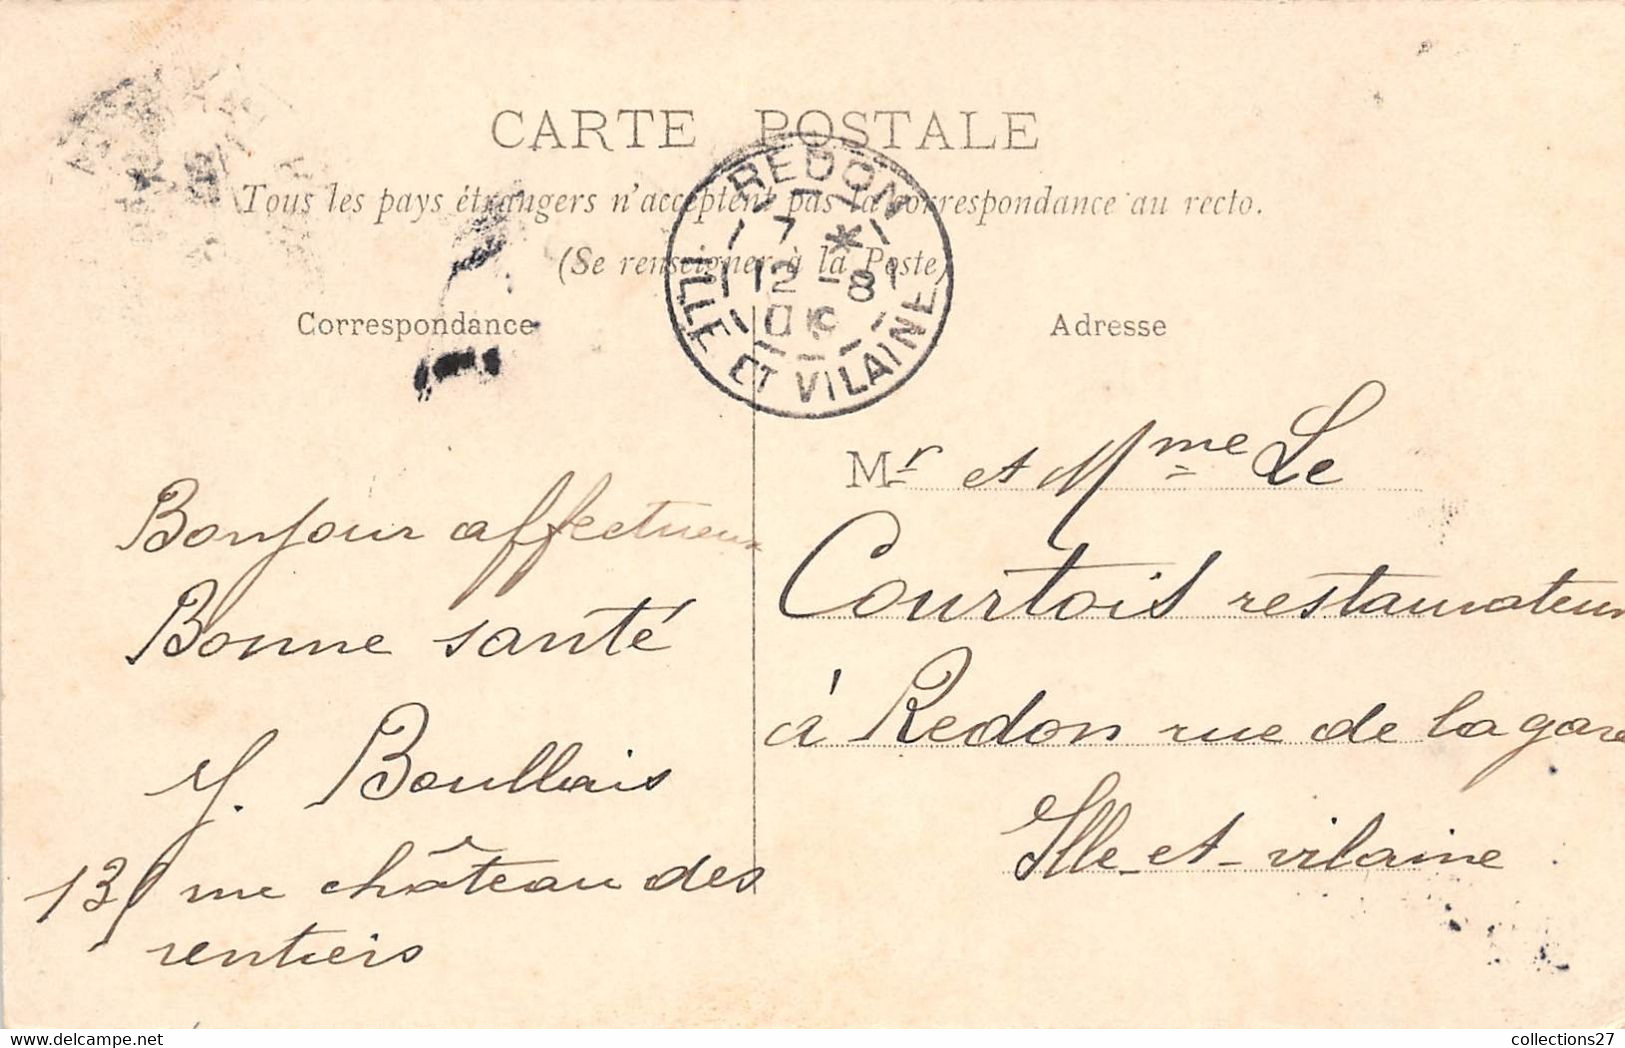 CARTE POSTALE
Tous les pays étrangers n'acceptent pas la correspondance au recto.
(Se renseigner à la Poste)
REDON
7 *
12 - 8
ILLE ET VILAINE
Correspondance
Adresse
Bonjour affectueux
Bonne santé
Boullais
rue château des
rentiers
Mr et Mme Le
Courtois restaurateur
à Redon rue de la gare
Ille-et-vilaine
collections27